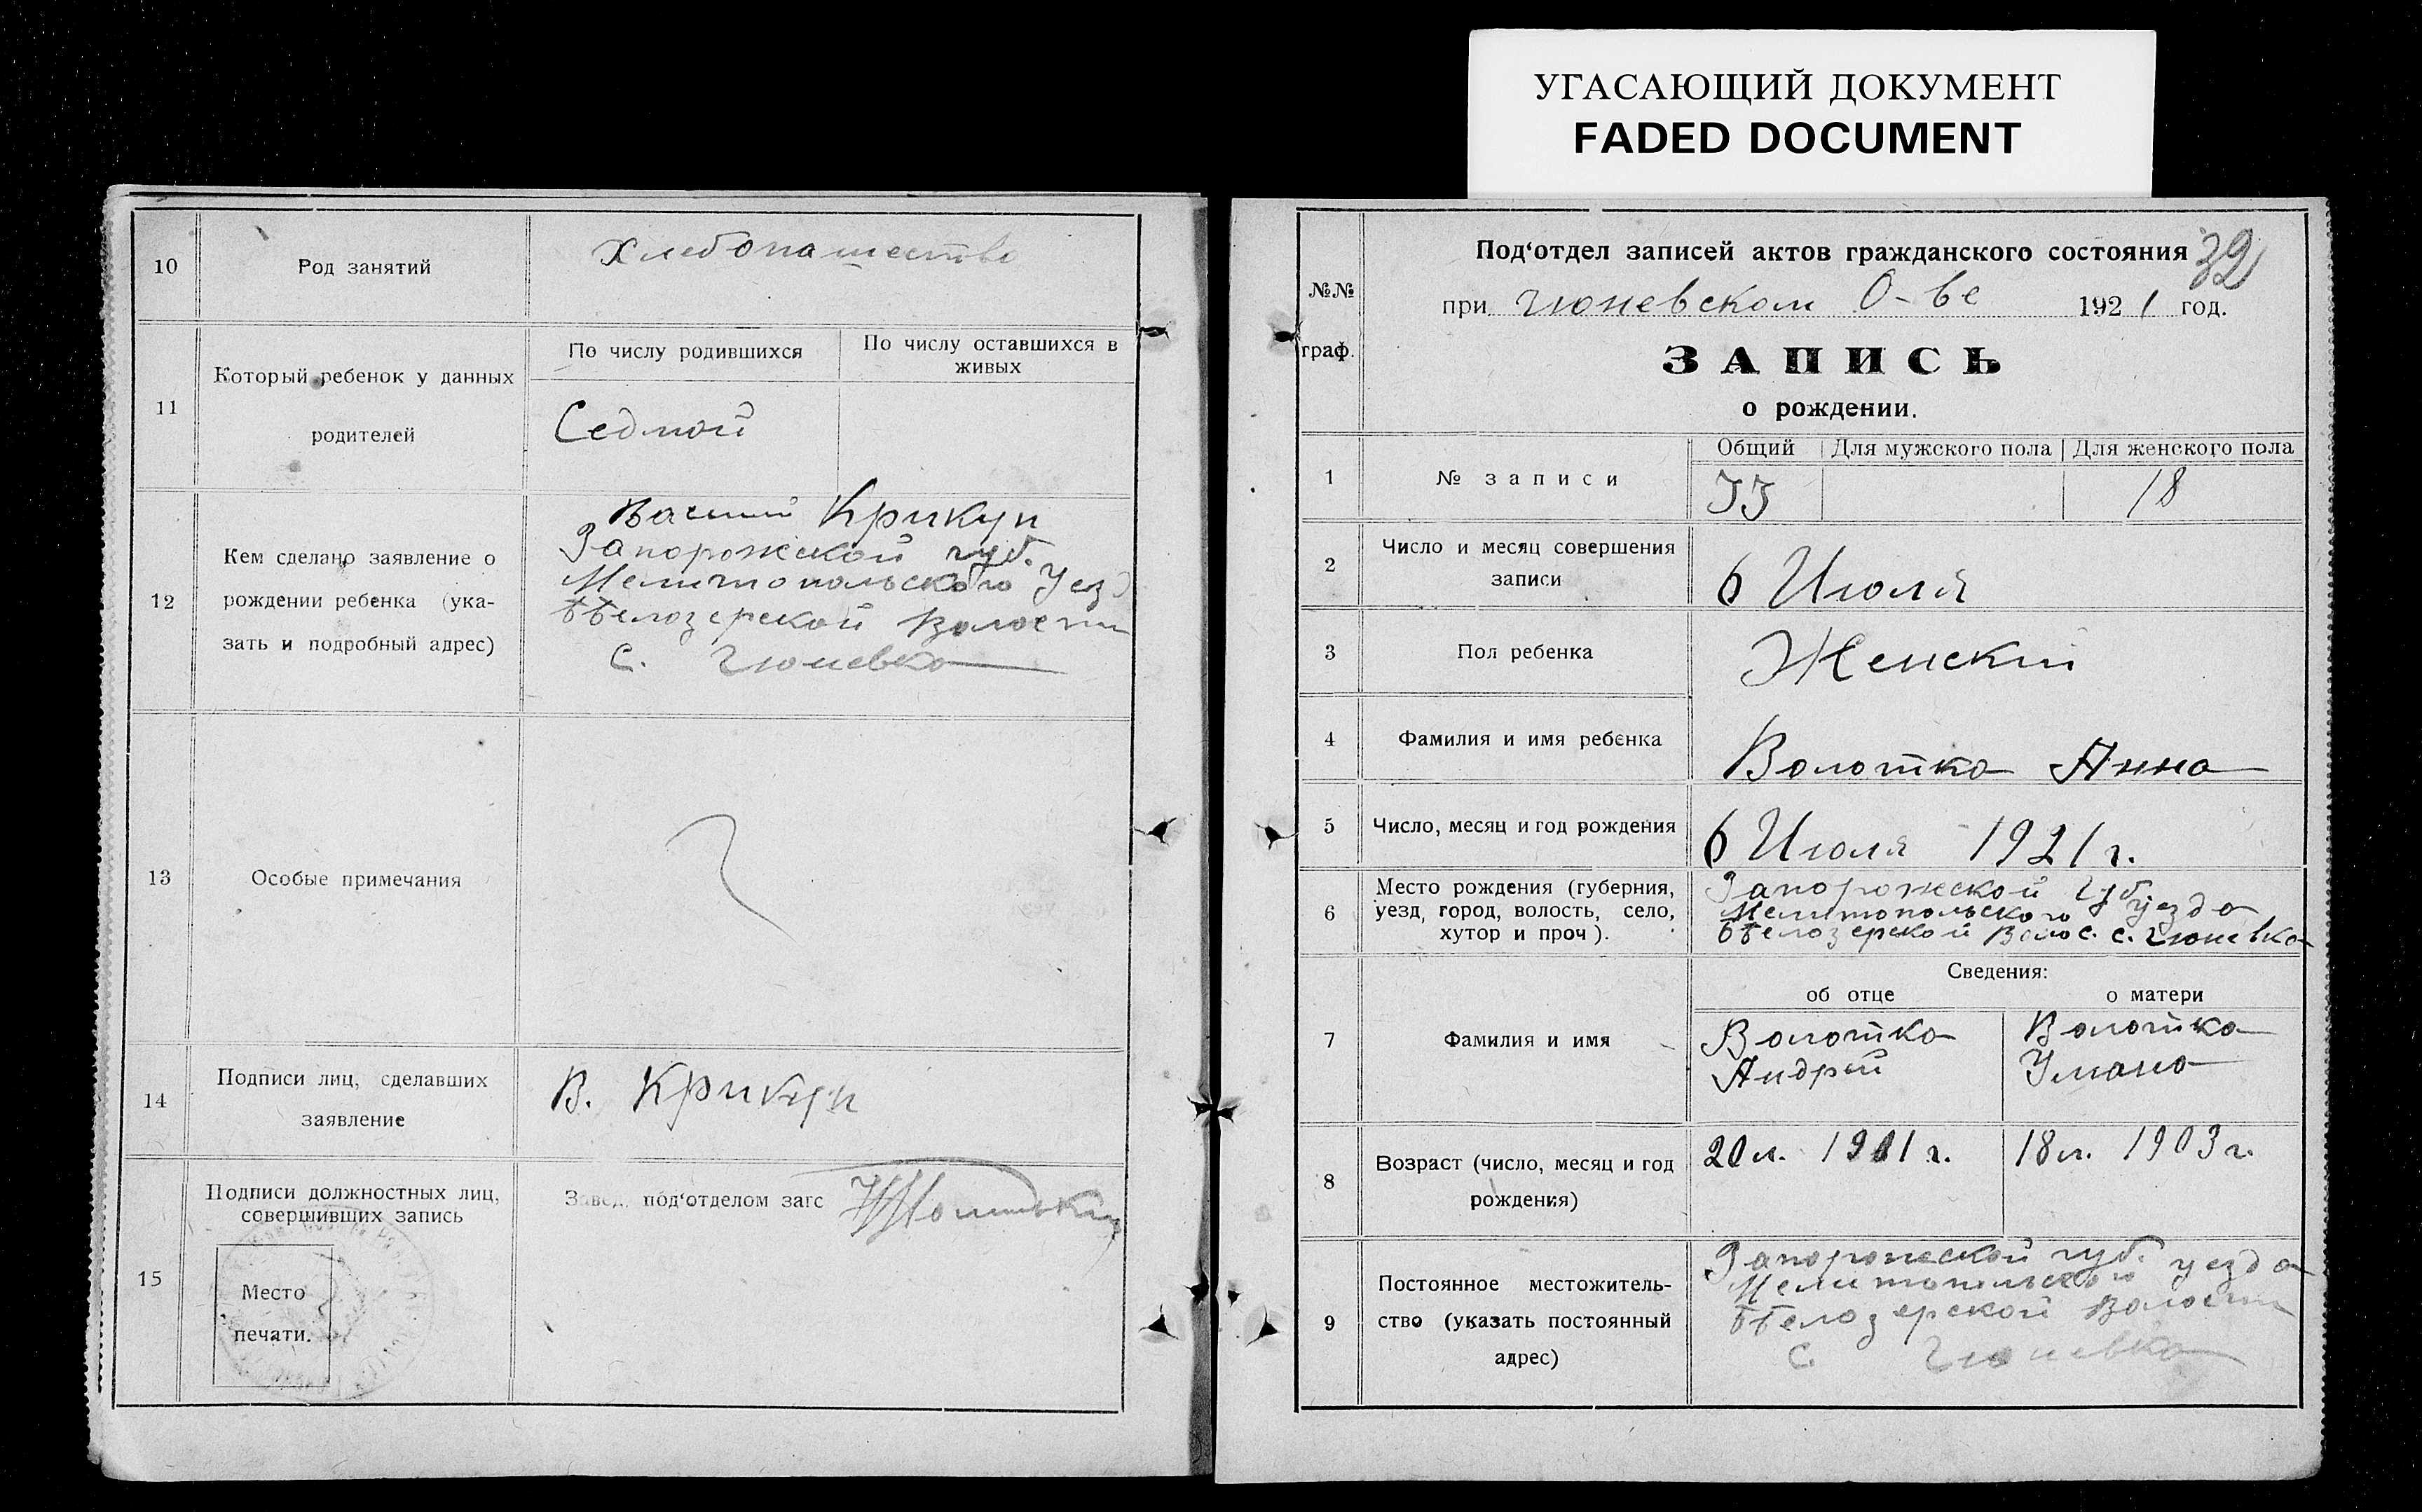 УГАСАЮЩИЙ ДОКУМЕНТ
FADED DOCUMENT
10
Род занятий
Хлебопашество
11
Который ребенок у данных
родителей
По числу родившихся
По числу оставшихся в
живых
Седмой
12
Кем сделано заявление о
рождении ребенка (ука-
зать и подробный адрес)
Василий Крикун
Запорожской губ.
Мелитопольского Уез
Белозерской Волости
с. Гюневка
13
Особые примечания
14
Подписи лиц, сделавших
заявление
В. Крикун
15
Подписи должностных лиц,
совершивших запись
Завед. под‘отделом загс
Место
печати.
№№
граф.
Под‘отдел записей актов гражданского состояния
32
при Гюневском О-ве 1921 год.
ЗАПИСЬ
о рождении.
1
№ записи
Общий
Для мужского пола
Для женского пола
33
18
2
Число и месяц совершения
записи
6 Июля
3
Пол ребенка
Женский
4
Фамилия и имя ребенка
Волотка Анна
5
Число, месяц и год рождения
6 Июля 1921 г.
6
Место рождения (губерния,
уезд, город, волость, село,
хутор и проч).
Запорожской Губ
Мелитопольского уезда
Белозерской Волос. с. Гюневка
Сведения:
об отце
о матери
7
Фамилия и имя
Волотка
Андрей
Волотка
Ульяна
8
Возраст (число, месяц и год
рождения)
20 л. 1901 г.
18 л. 1903 г.
9
Постоянное местожитель-
ство (указать постоянный
адрес)
Запорожской губ.
Мелитопольского уезда
Белозерской Волости
с. Гюневка